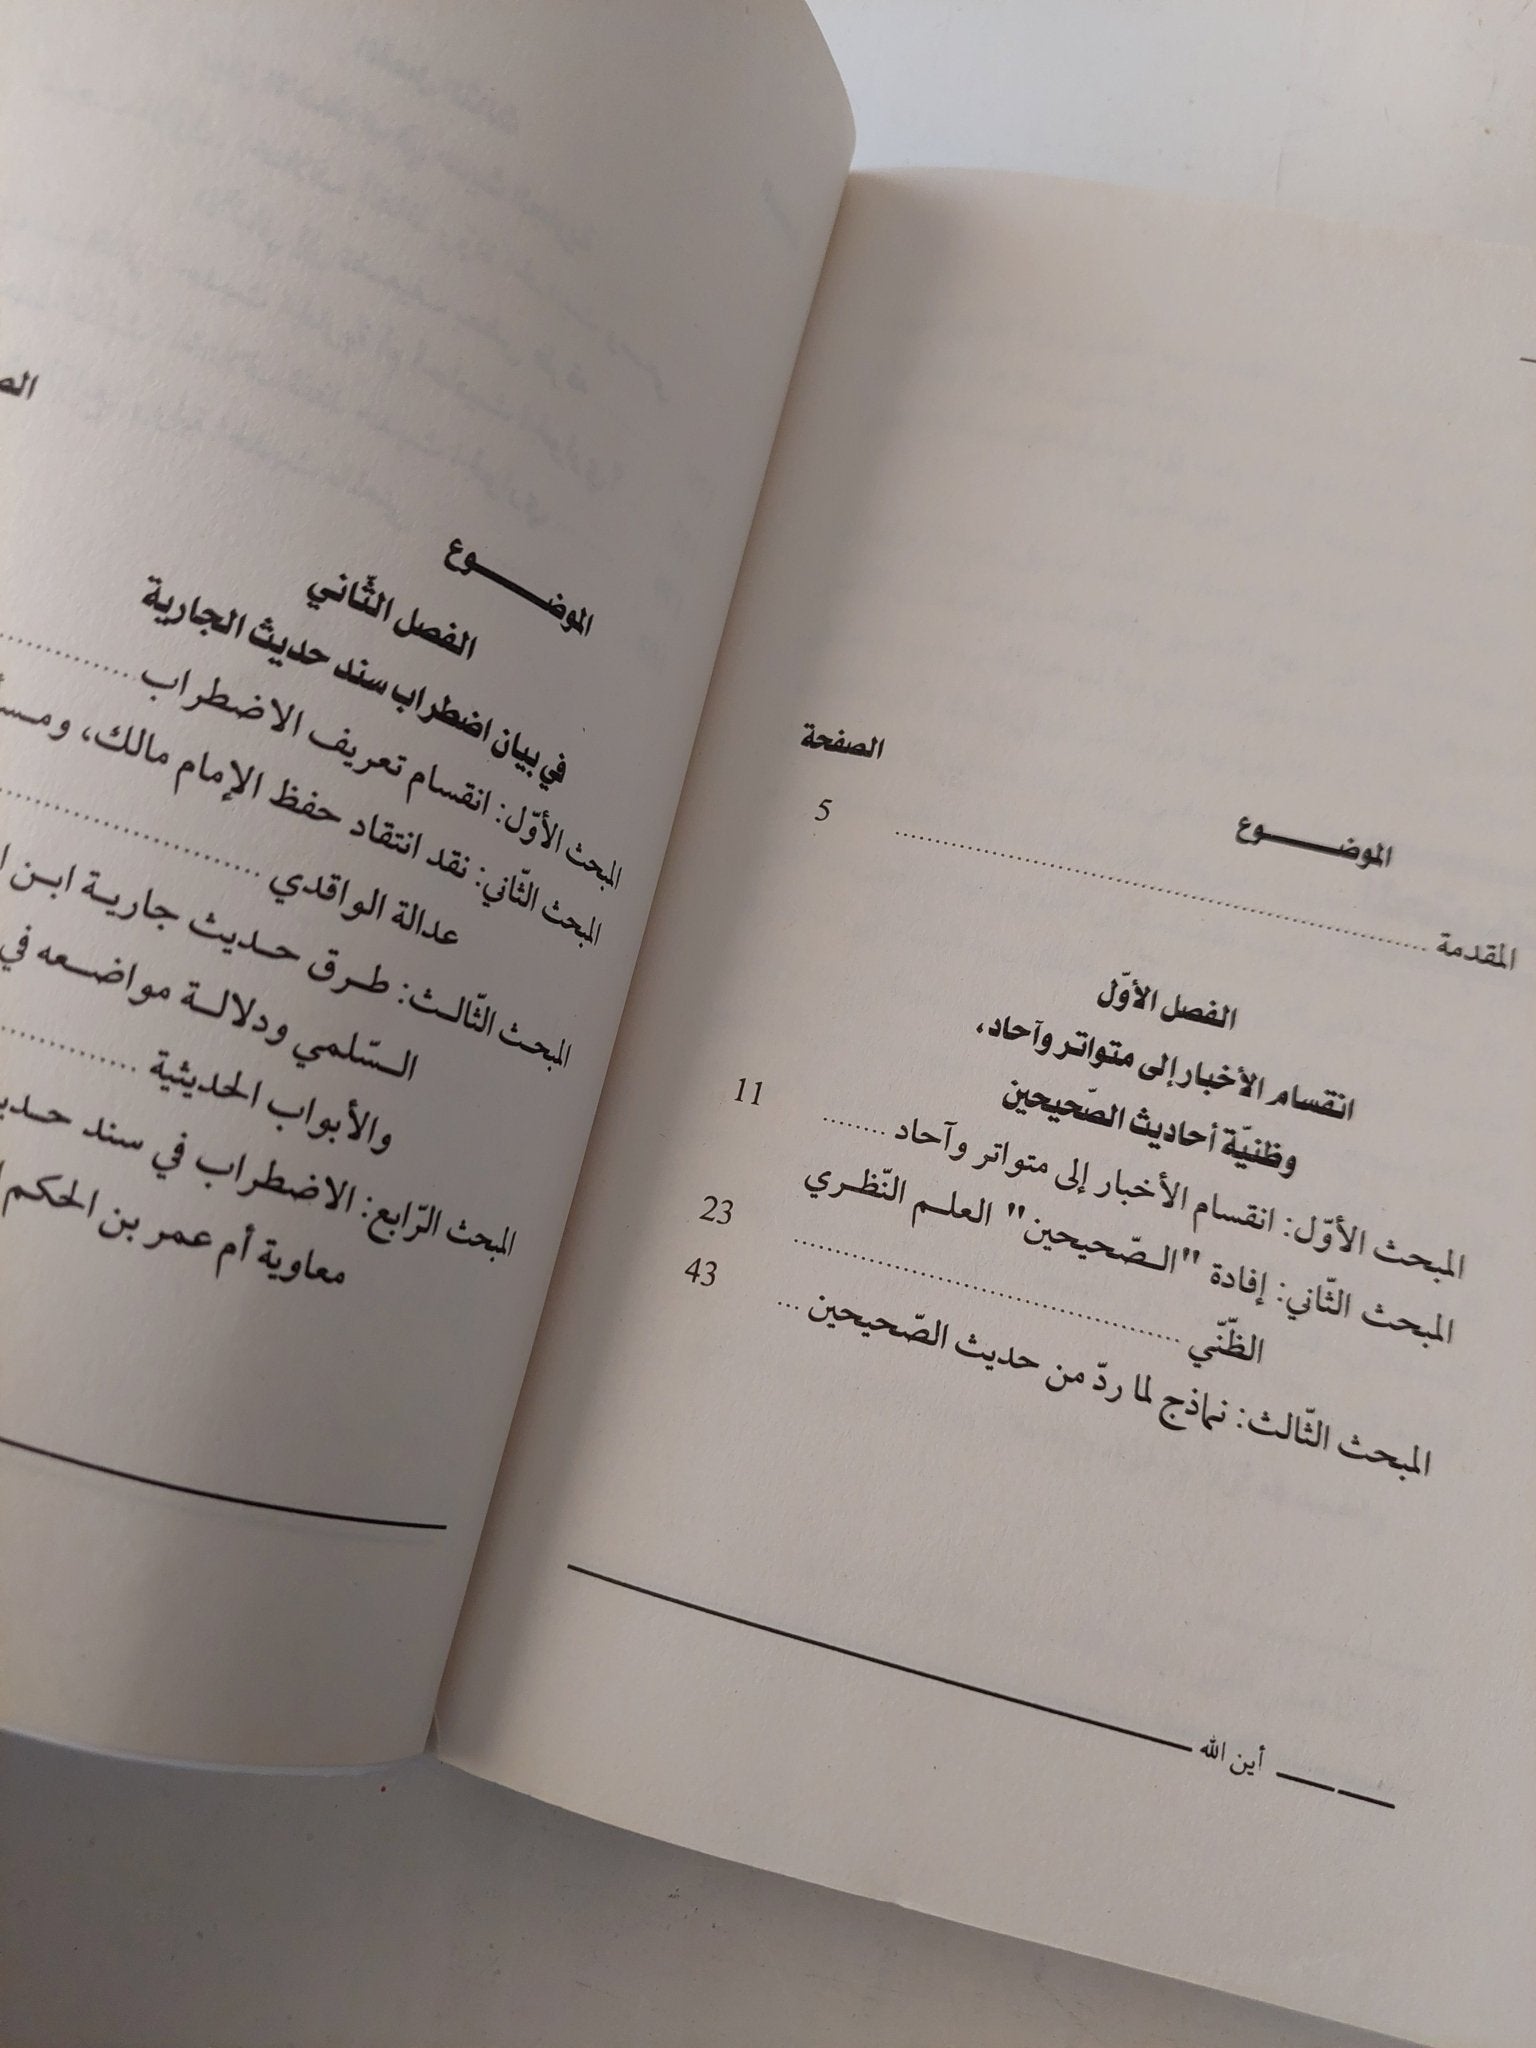 الموضـــــوع الصفحة
المقدمة ........................................................ 5
الفصل الأوّل
انقسام الأخبار إلى متواتر وآحاد،
وظنيّة أحاديث الصّحيحين
المبحث الأوّل: انقسام الأخبار إلى متواتر وآحاد ........ 11
المبحث الثّاني: إفادة "الـصّحيحين" العلـم النّظـري
الظّنّي ........................................ 23
المبحث الثّالث: نماذج لما ردّ من حديث الصّحيحين ... 43
أين الله
الموضـــــوع
الفصل الثّاني
في بيان اضطراب سند حديث الجارية
المبحث الأوّل: انقسام تعريف الاضطراب ................
المبحث الثّاني: نقد انتقاد حفظ الإمام مالك،
عدالة الواقدي ................................
المبحـث الثّالـث: طـرق حـديث جاريـة ابـن
الـسّلمي ودلالـة مواضـعه في
والأبواب الحديثية ................
المبحث الرّابع: الاضطراب في سند
معاوية أم عمر بن الحكم